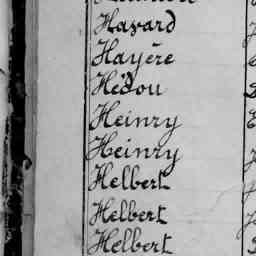 Havard
Hayère
Hédou
Heinry
Heinry
Helbert
Helbert
Helbert